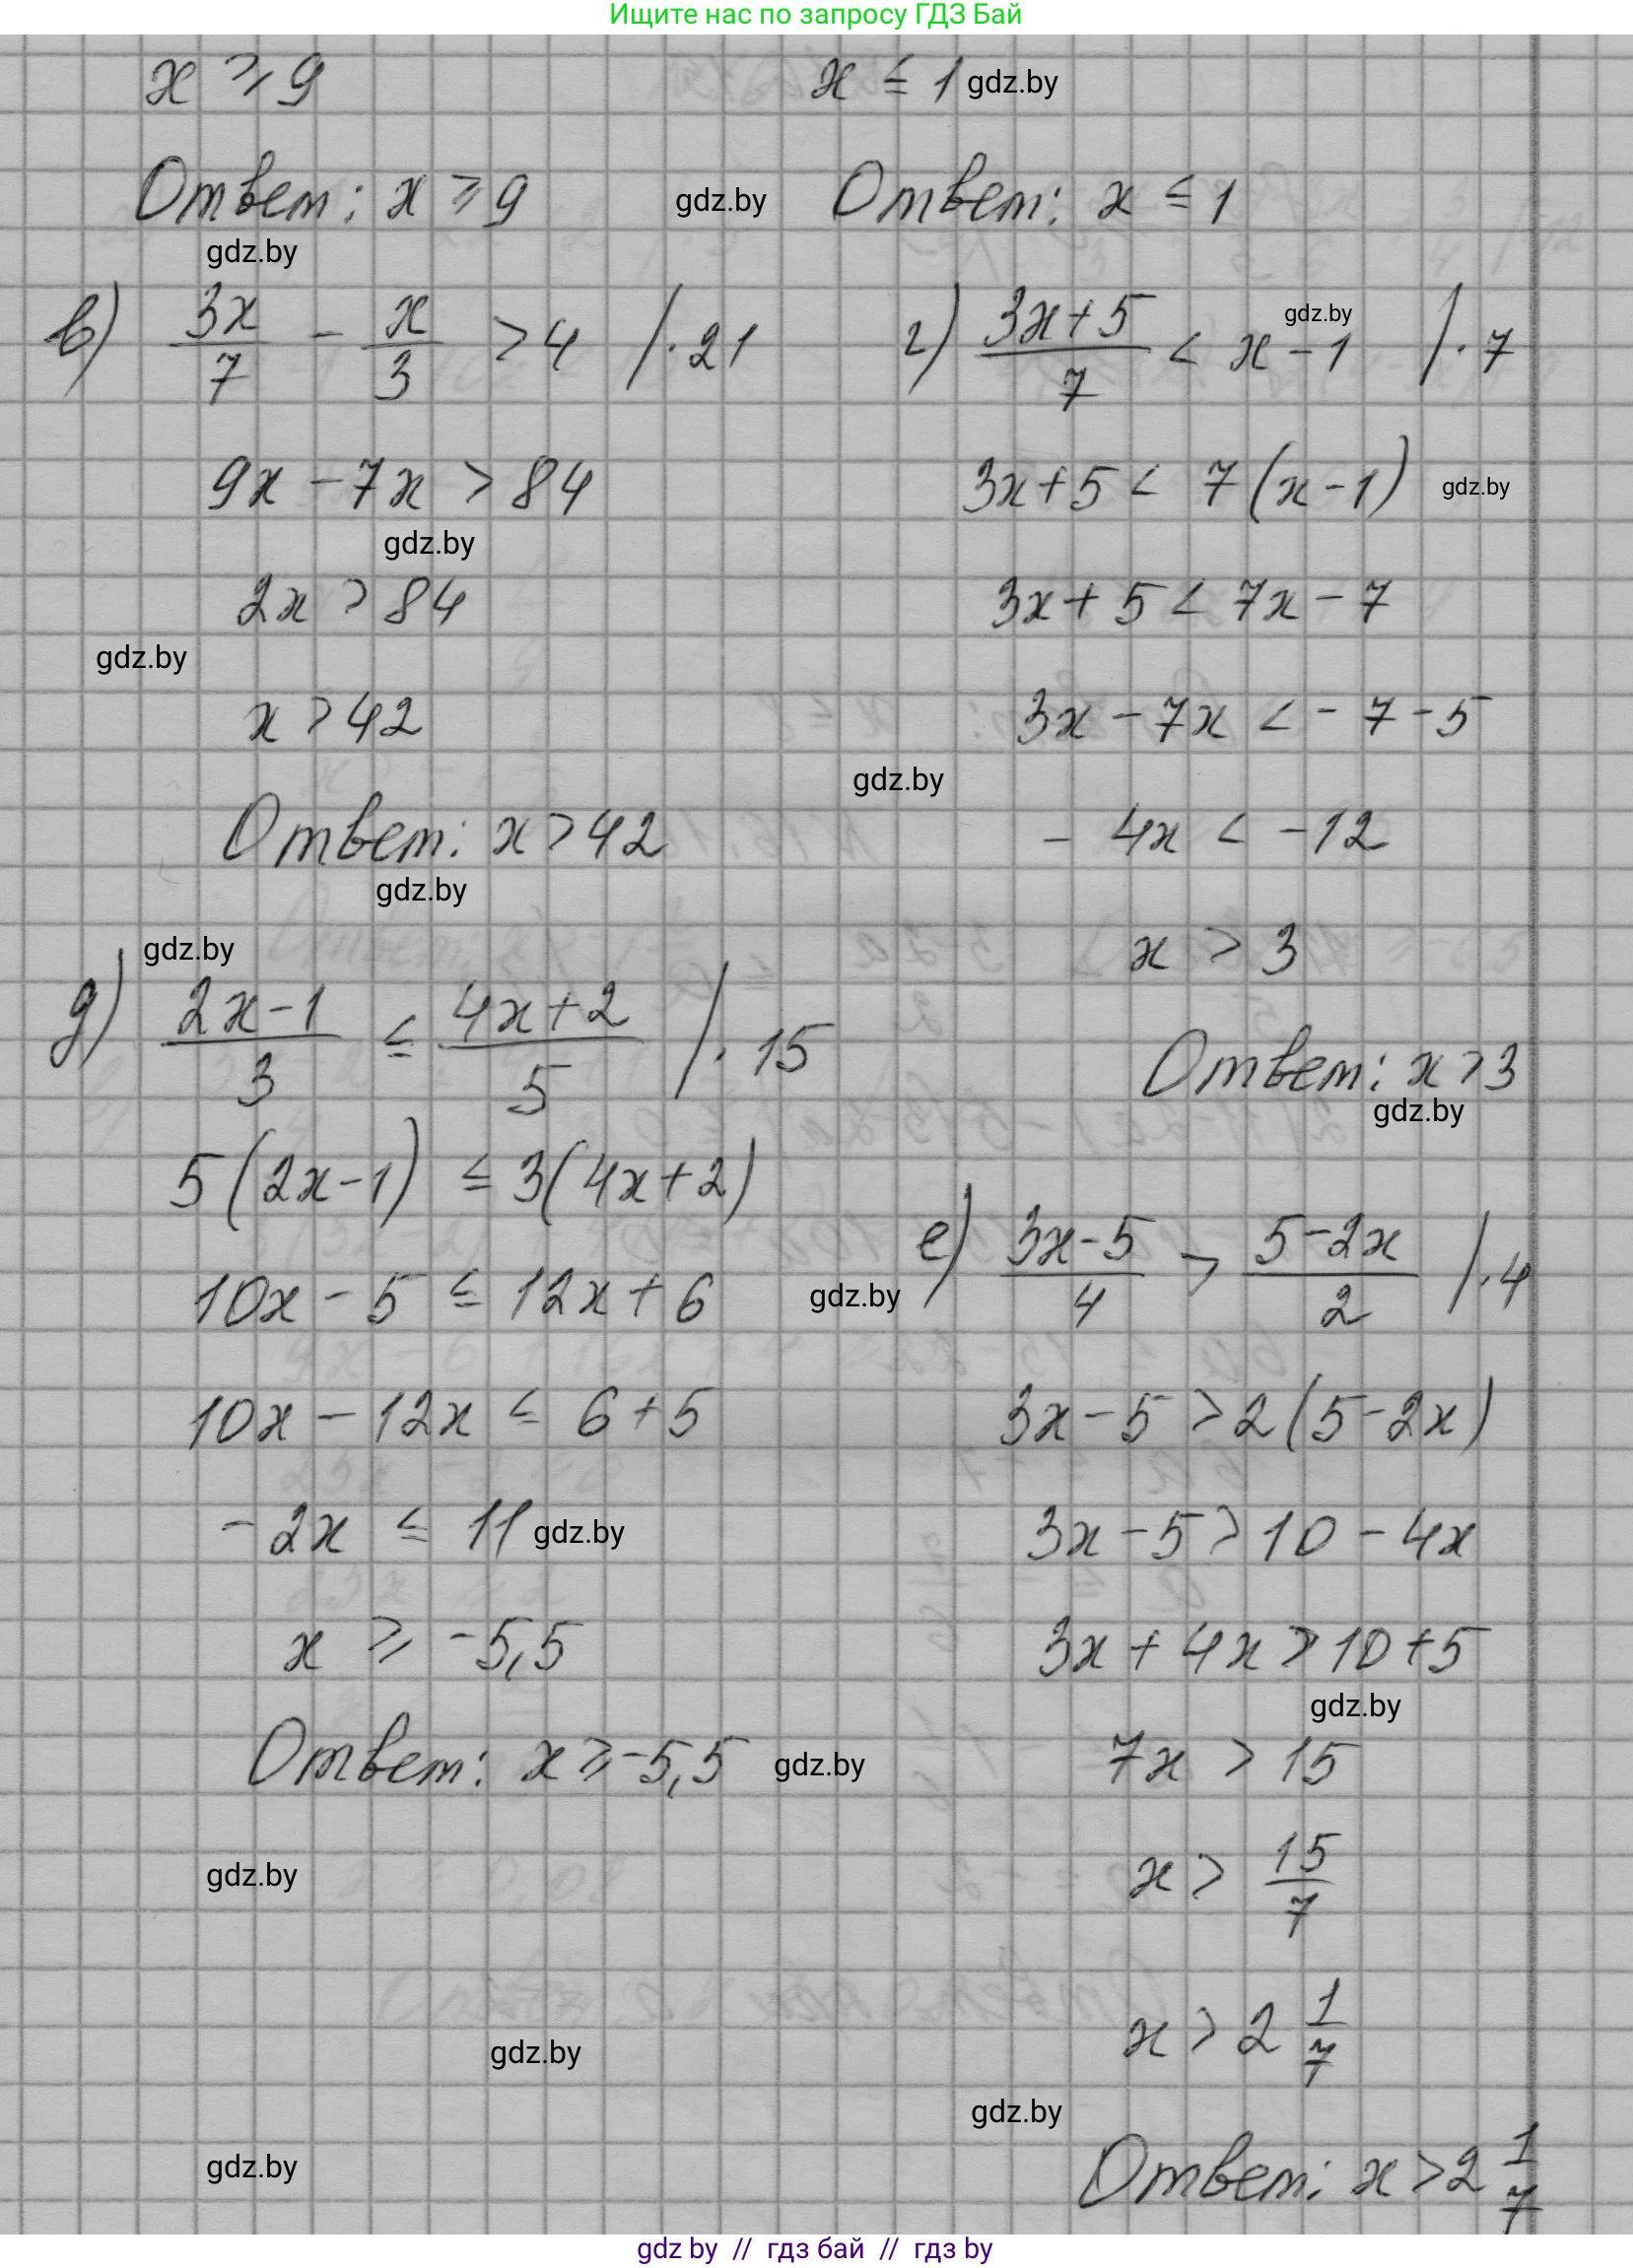 Ищите нас по запросу ГДЗ Бай
x ⩾ 9
x ≤ 1 gdz.by
Ответ: x ⩾ 9
gdz.by
Ответ: x ≤ 1
gdz.by
в) 3x/7 - x/3 > 4 /·21
г) (3x+5)/7 < x-1 /·7
gdz.by
9x - 7x > 84
3x+5 < 7(x-1) gdz.by
gdz.by
2x > 84
3x+5 < 7x-7
gdz.by
x > 42
3x-7x < -7-5
gdz.by
Ответ: x > 42
-4x < -12
gdz.by
x > 3
gdz.by
д) (2x-1)/3 ≤ (4x+2)/5 /·15
Ответ: x > 3
gdz.by
5(2x-1) ≤ 3(4x+2)
е) (3x-5)/4 > (5-2x)/2 /·4
10x-5 ≤ 12x+6
gdz.by
10x-12x ≤ 6+5
3x-5 > 2(5-2x)
-2x ≤ 11 gdz.by
3x-5 > 10-4x
x ⩾ -5,5
3x+4x > 10+5
gdz.by
Ответ: x ⩾ -5,5 gdz.by
7x > 15
gdz.by
x > 15/7
x > 2 1/7
gdz.by
gdz.by
gdz.by
Ответ: x > 2 1/7
gdz by // гдз бай // гдз by